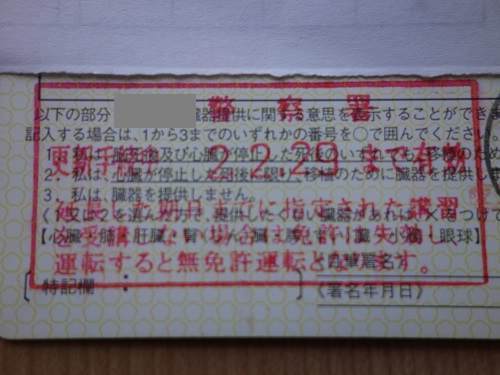 警察署
以下の部分 臓器提供に関する意思を表示することができま
記入する場合は、1から3までのいずれかの番号を○で囲んでくださ
更新手続中 まで有効
1. 私は、脳死後及び心臓が停止した死後のいずれでも、移植のため
2. 私は、心臓が停止した死後に限り、移植のために臓器を提供しま
3. 私は、臓器を提供しません。
までに指定された講習
《1又は2を選んだ方で、提供したくない臓器があれば、×をつけ
を受講しない場合は免許は失効し
【心臓・肺・肝臓・腎臓・膵臓・小腸・眼球】
運転すると無免許運転となります。
《自筆署名》
〔特記欄:
《署名年月日》